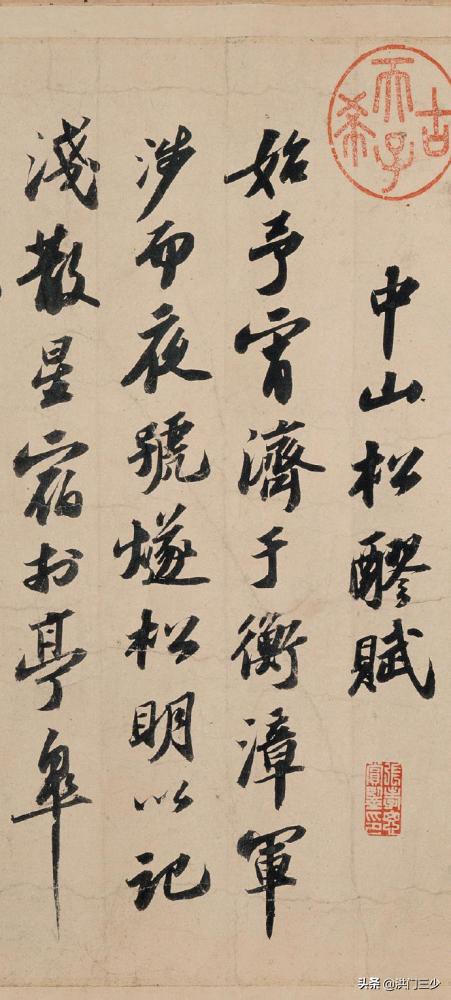 中山松醪賦
始予宵濟于衡漳軍
涉而夜號燧松明以記
淺散星宿於亭皋
古希天子
头条 @洪门三少